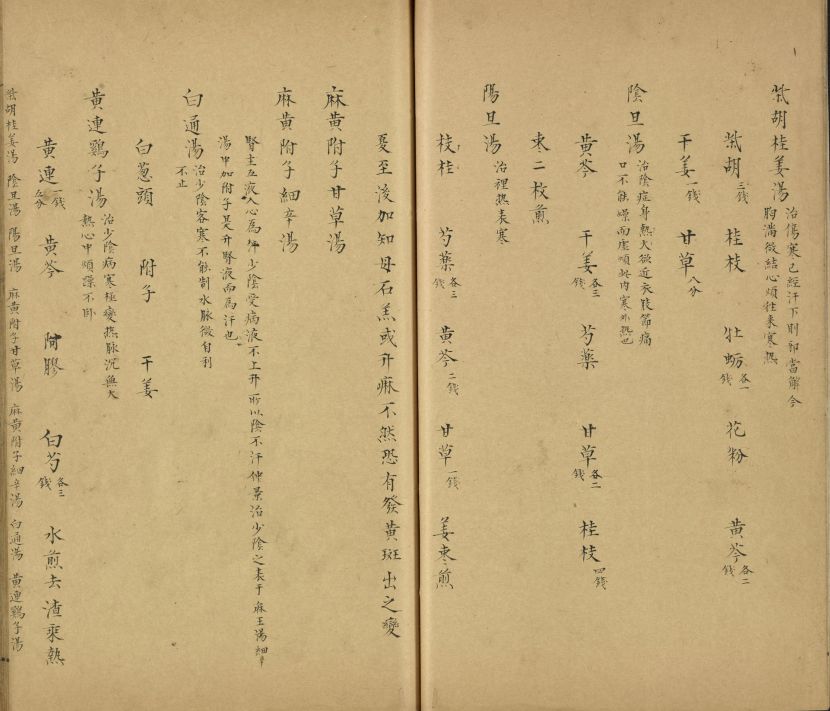 柴胡桂姜湯 治傷寒已經汗下則卻當解今
胸滿微結心煩往來寒熱
柴胡三錢 桂枝 牡蛎各一錢 花粉 黃芩各二錢
干姜一錢 甘草八分
陰旦湯 治陰症身熱大欲近衣肢節痛
口不能燥而虛煩此内寒外熱也
黃芩 干姜各三錢 芍藥 甘草各二錢 桂枝四錢
枣二枚煎
陽旦湯 治裡熱表寒
枝桂 芍藥各三錢 黃芩二錢 甘草一錢 姜枣煎
夏至後加知母石羔或升麻不然恐有發黃斑出之變
麻黃附子甘草湯
麻黃附子細辛湯
腎主五液入心為汗少陰受病液不上升所以陰不汗仲景治少陰之表于麻王湯細辛
湯中加附子是升腎液而為汗也
白通湯 治少陰客寒不能制水脉微自利
不止
白葱頭 附子 干姜
黃連鷄子湯 治少陰病寒極變熱脉沉無大
熱心中煩譟不卧
黃連一錢五分 黃芩 阿膠 白芍各三錢 水煎去渣乘熱
柴胡桂姜湯 陰旦湯 陽旦湯 麻黃附子甘草湯 麻黃附子細辛湯 白通湯 黃連鷄子湯